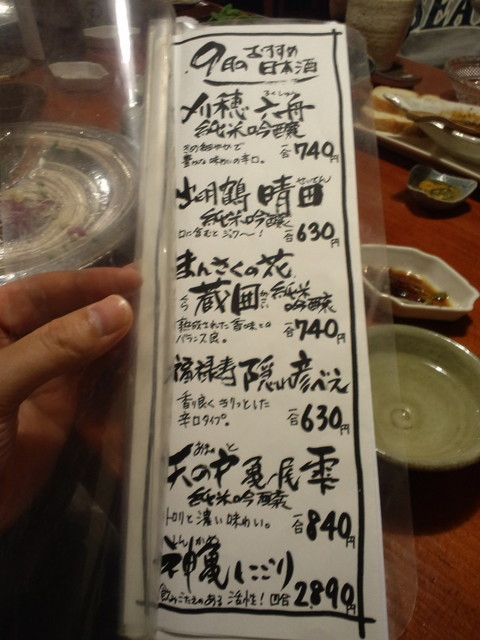 9月の おすすめ 日本酒
刈穂 六舟
ろくしゅう
純米吟醸
きめ細やかで
豊かな味わいの辛口。
一合 740円
出羽鶴 晴田
せいでん
純米吟醸
口に含むとジュワ〜!
一合 630円
まんさくの花
蔵囲 純米吟醸
くら がこい
熟成された香味との
バランス良。
一合 740円
福禄寿 隠れ彦べえ
香り良くキリッとした
辛口タイプ。
一合 630円
天の戸 亀の尾 雫
あま と
純米吟醸
トロリと濃い味わい。
一合 840円
神亀 にごり
しんかめ
飲みごたえのある 活性! 四合 2,890円